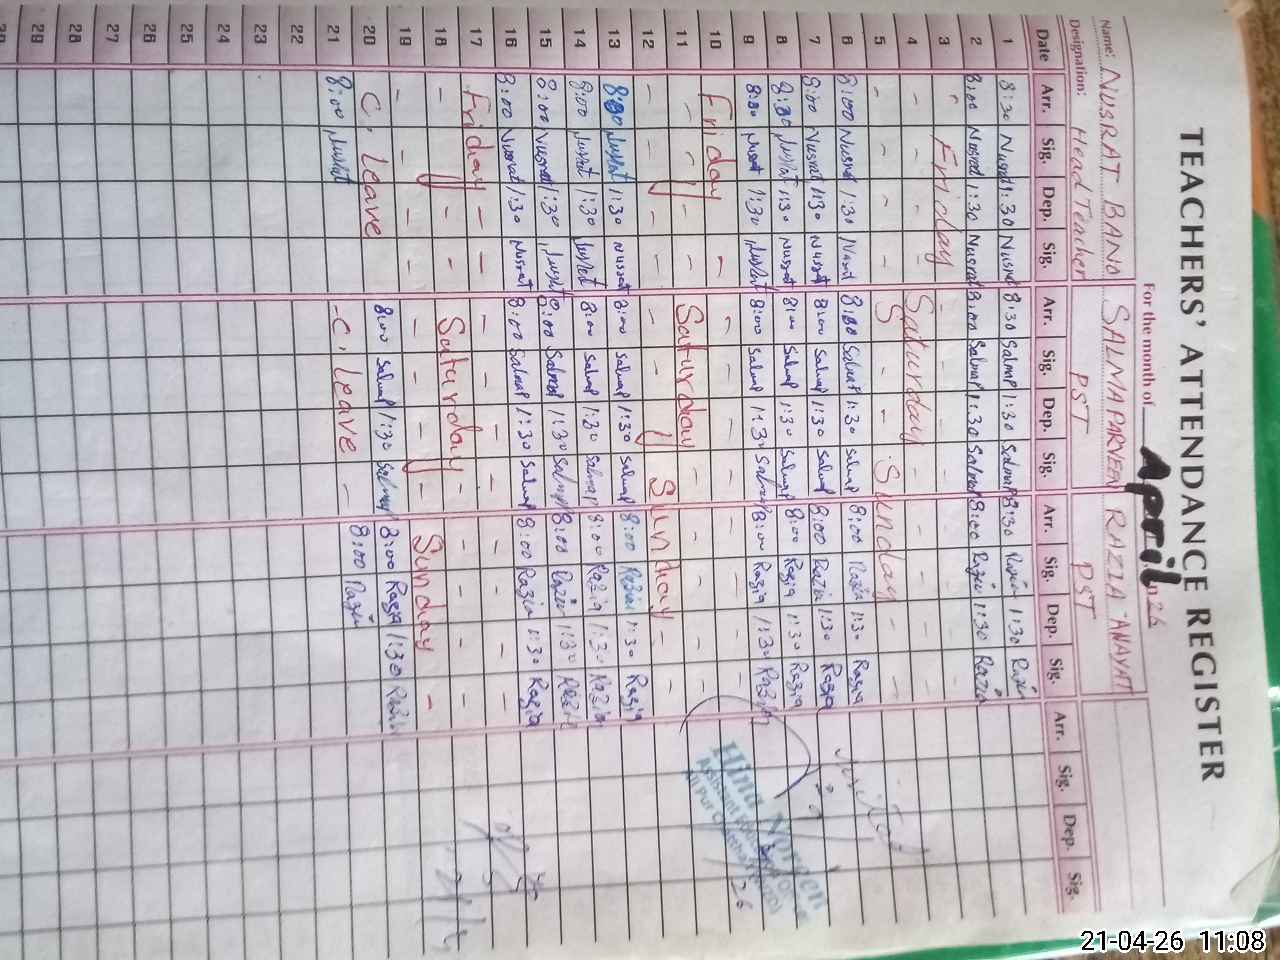 TEACHERS' ATTENDANCE REGISTER
For the month of April 2026
Name: NUSRAT BANO SALMA PARVEEN RAZIA ANAYAT
Designation: Head Teacher PST PST
Date Arr. Sig. Dep. Sig. Arr. Sig. Dep. Sig. Arr. Sig. Dep. Sig. Arr. Sig. Dep. Sig.
1 8:30 Nusrat 1:30 Nusrat 8:30 SalmaP 1:30 SalmaP 8:30 Razia 1:30 Razia
2 8:00 Nusrat 1:30 Nusrat 8:00 SalmaP 1:30 SalmaP 8:00 Razia 1:30 Razia
3 - Friday - - - - - -
4 - - - - Saturday - - -
5 - - - - S - Sunday -
6 8:00 Nusrat 1:30 Nusrat 8:00 SalmaP 1:30 SalmaP 8:00 Razia 1:30 Razia
7 8:00 Nusrat 1:30 Nusrat 8:00 SalmaP 1:30 SalmaP 8:00 Razia 1:30 Razia
8 8:00 Nusrat 1:30 Nusrat 8:00 SalmaP 1:30 SalmaP 8:00 Razia 1:30 Razia
9 8:00 Nusrat 1:30 Nusrat 8:00 SalmaP 1:30 SalmaP 8:00 Razia 1:30 Razia
10 Friday - - - - - - -
11 - - - Saturday - - - -
12 - - - - - - Sunday - -
13 8:00 Nusrat 1:30 Nusrat 8:00 SalmaP 1:30 SalmaP 8:00 Razia 1:30 Razia
14 8:00 Nusrat 1:30 Nusrat 8:00 SalmaP 1:30 SalmaP 8:00 Razia 1:30 Razia
15 8:00 Nusrat 1:30 Nusrat 8:00 SalmaP 1:30 SalmaP 8:00 Razia 1:30 Razia
16 8:00 Nusrat 1:30 Nusrat 8:00 SalmaP 1:30 SalmaP 8:00 Razia 1:30 Razia
17 Friday - - - - - - -
18 - - - Saturday - - - -
19 - - - - - - - Sunday -
20 C. leave 8:00 SalmaP 1:30 SalmaP 8:00 Razia 1:30 Razia
21 8:00 Nusrat - C. leave - 8:00 Razia
22
23
24
25
26
27
28
29
Visited
Hina Noreen
21-04-26 11:08